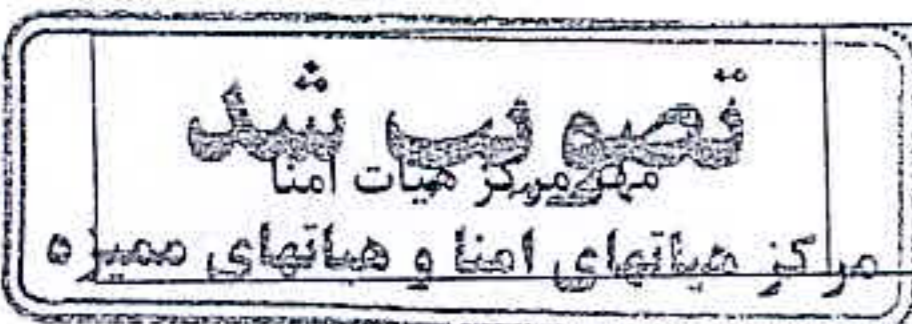 تصویب شد
مهر مرکز هیات امنا
مرکز هیاتهای امنا و هیاتهای ممیزه